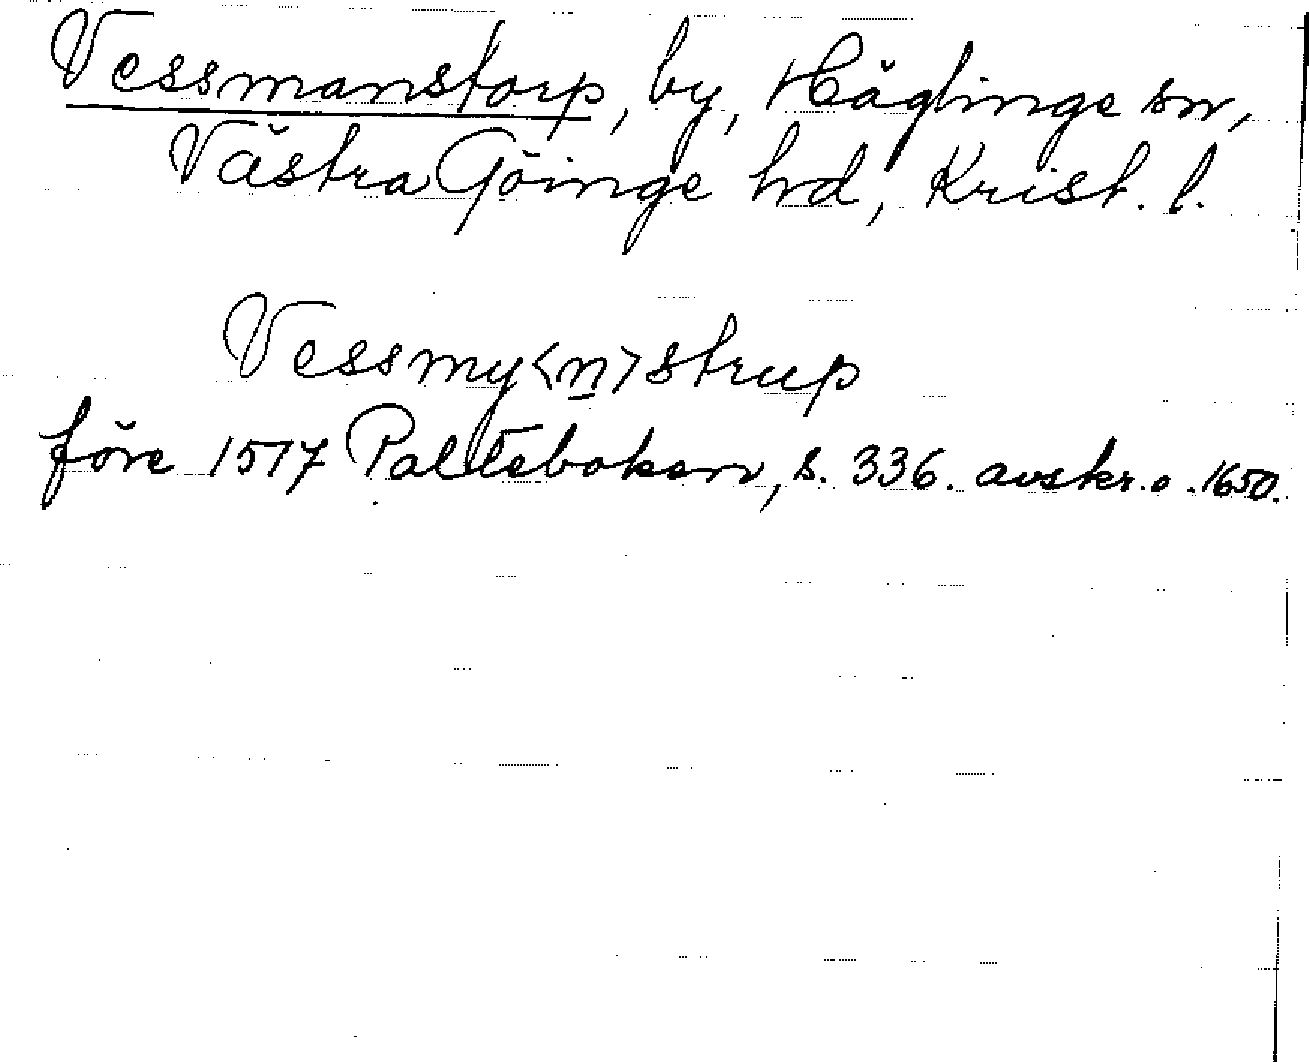 Vessmanstorp, by, Häglinge sn,
Västra Göinge hd, Krist. l.
Vessmy<n>strup
före 1517 Palteboken, s. 336. avskr. o. 1650.